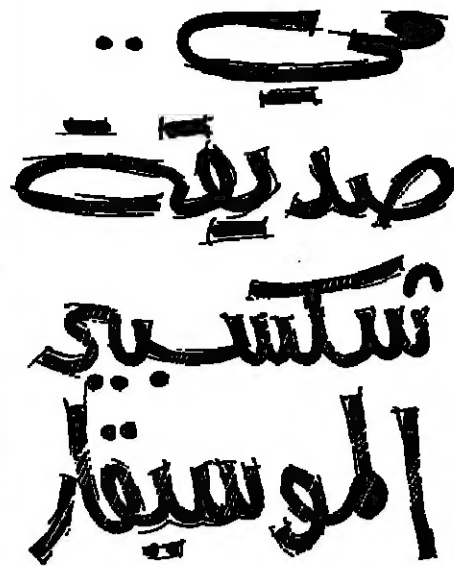 مي ..
صديقة
شكسبير
الموسيقار